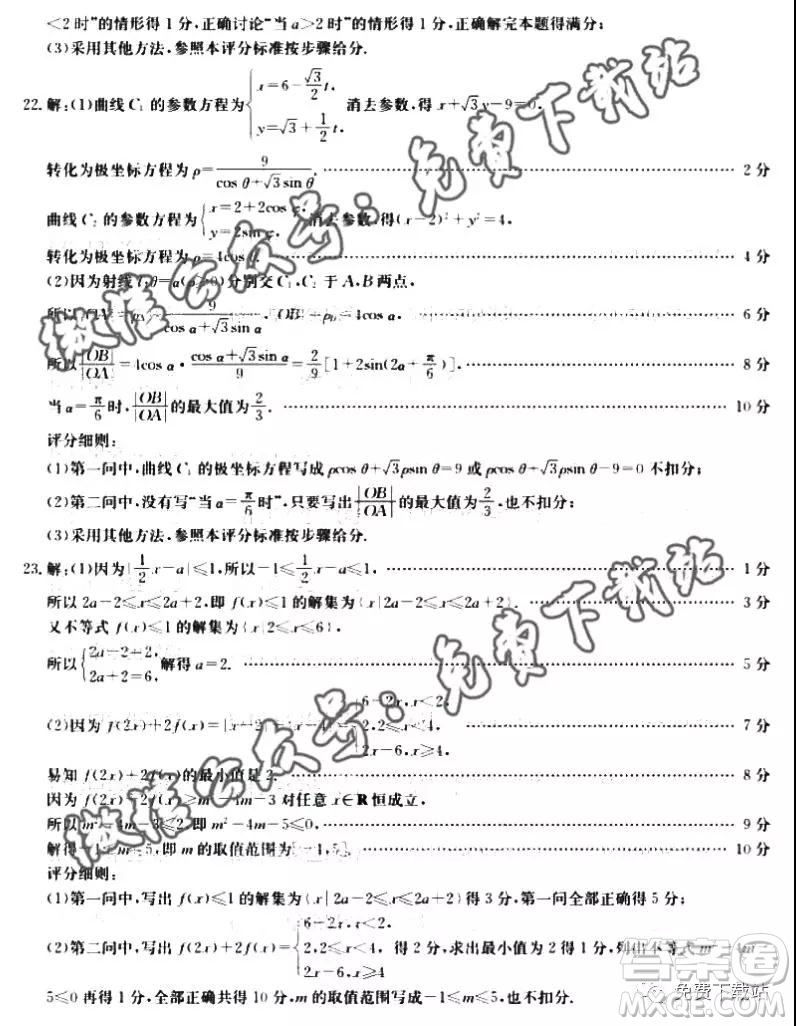 <2时”的情形得1分,正确讨论“当a>2时”的情形得1分,正确解完本题得满分;
(3)采用其他方法,参照本评分标准按步骤给分.
22.解:(1)曲线C₁的参数方程为{x=6-√3/2 t, y=√3+1/2 t, 消去参数,得x+√3y-9=0,
转化为极坐标方程为ρ=9/(cos θ+√3sin θ). 2分
曲线C₂的参数方程为{x=2+2cos y=2sin 消去参数,得(x-2)²+y²=4,
转化为极坐标方程为ρ=4cos θ. 4分
(2)因为射线l:θ=α(ρ≥0)分别交C₁,C₂于A,B两点,
所以 9/(cos α+√3sin α), OB =4cos α. 6分
所以|OB|/|OA|=4cos α·(cos α+√3sin α)/9=2/9[1+2sin(2α+π/6)]. 8分
当α=π/6时,|OB|/|OA|的最大值为2/3. 10分
评分细则:
(1)第一问中,曲线C₁的极坐标方程写成ρcos θ+√3ρsin θ=9或ρcos θ+√3ρsin θ-9=0不扣分;
(2)第二问中,没有写“当α=π/6时”,只要写出|OB|/|OA|的最大值为2/3,也不扣分;
(3)采用其他方法,参照本评分标准按步骤给分.
23.解:(1)因为|1/2 x-a|≤1,所以-1≤1/2 x-a≤1, 1分
所以2a-2≤x≤2a+2,即f(x)≤1的解集为{x|2a-2≤x≤2a+2}. 3分
又不等式f(x)≤1的解集为{x|2≤x≤6},
所以{2a-2=2, 2a+2=6, 解得a=2. 5分
(2)因为f(2x)+2f(x)=|x-2| ={6-2x,x<2, 2,2≤x<4, 2x-6,x≥4, 7分
易知f(2x)+2f(x)的最小值是2. 8分
因为f(2x)+2f(x)≥m²-4m-3对任意x∈R恒成立,
所以m²-4m-3≤2,即m²-4m-5≤0, 9分
解得-1≤m≤5,即m的取值范围为[-1,5]. 10分
评分细则:
(1)第一问中,写出f(x)≤1的解集为{x|2a-2≤x≤2a+2}得3分,第一问全部正确得5分;
(2)第二问中,写出f(2x)+2f(x)={6-2x,x<2, 2,2≤x≤4, 2x-6,x≥4 得2分,求出最小值为2得1分,列出不等式m²-4m-
5≤0再得1分,全部正确共得10分,m的取值范围写成-1≤m≤5,也不扣分.
微信公众号:免费下载站
微信公众号:免费下载站
答案圈
免费下载站